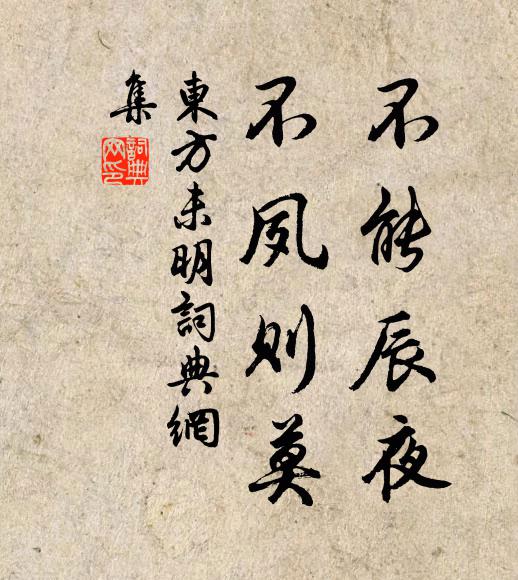 不能辰夜
不夙则莫
東方未明詞典網
集
詞典
网印